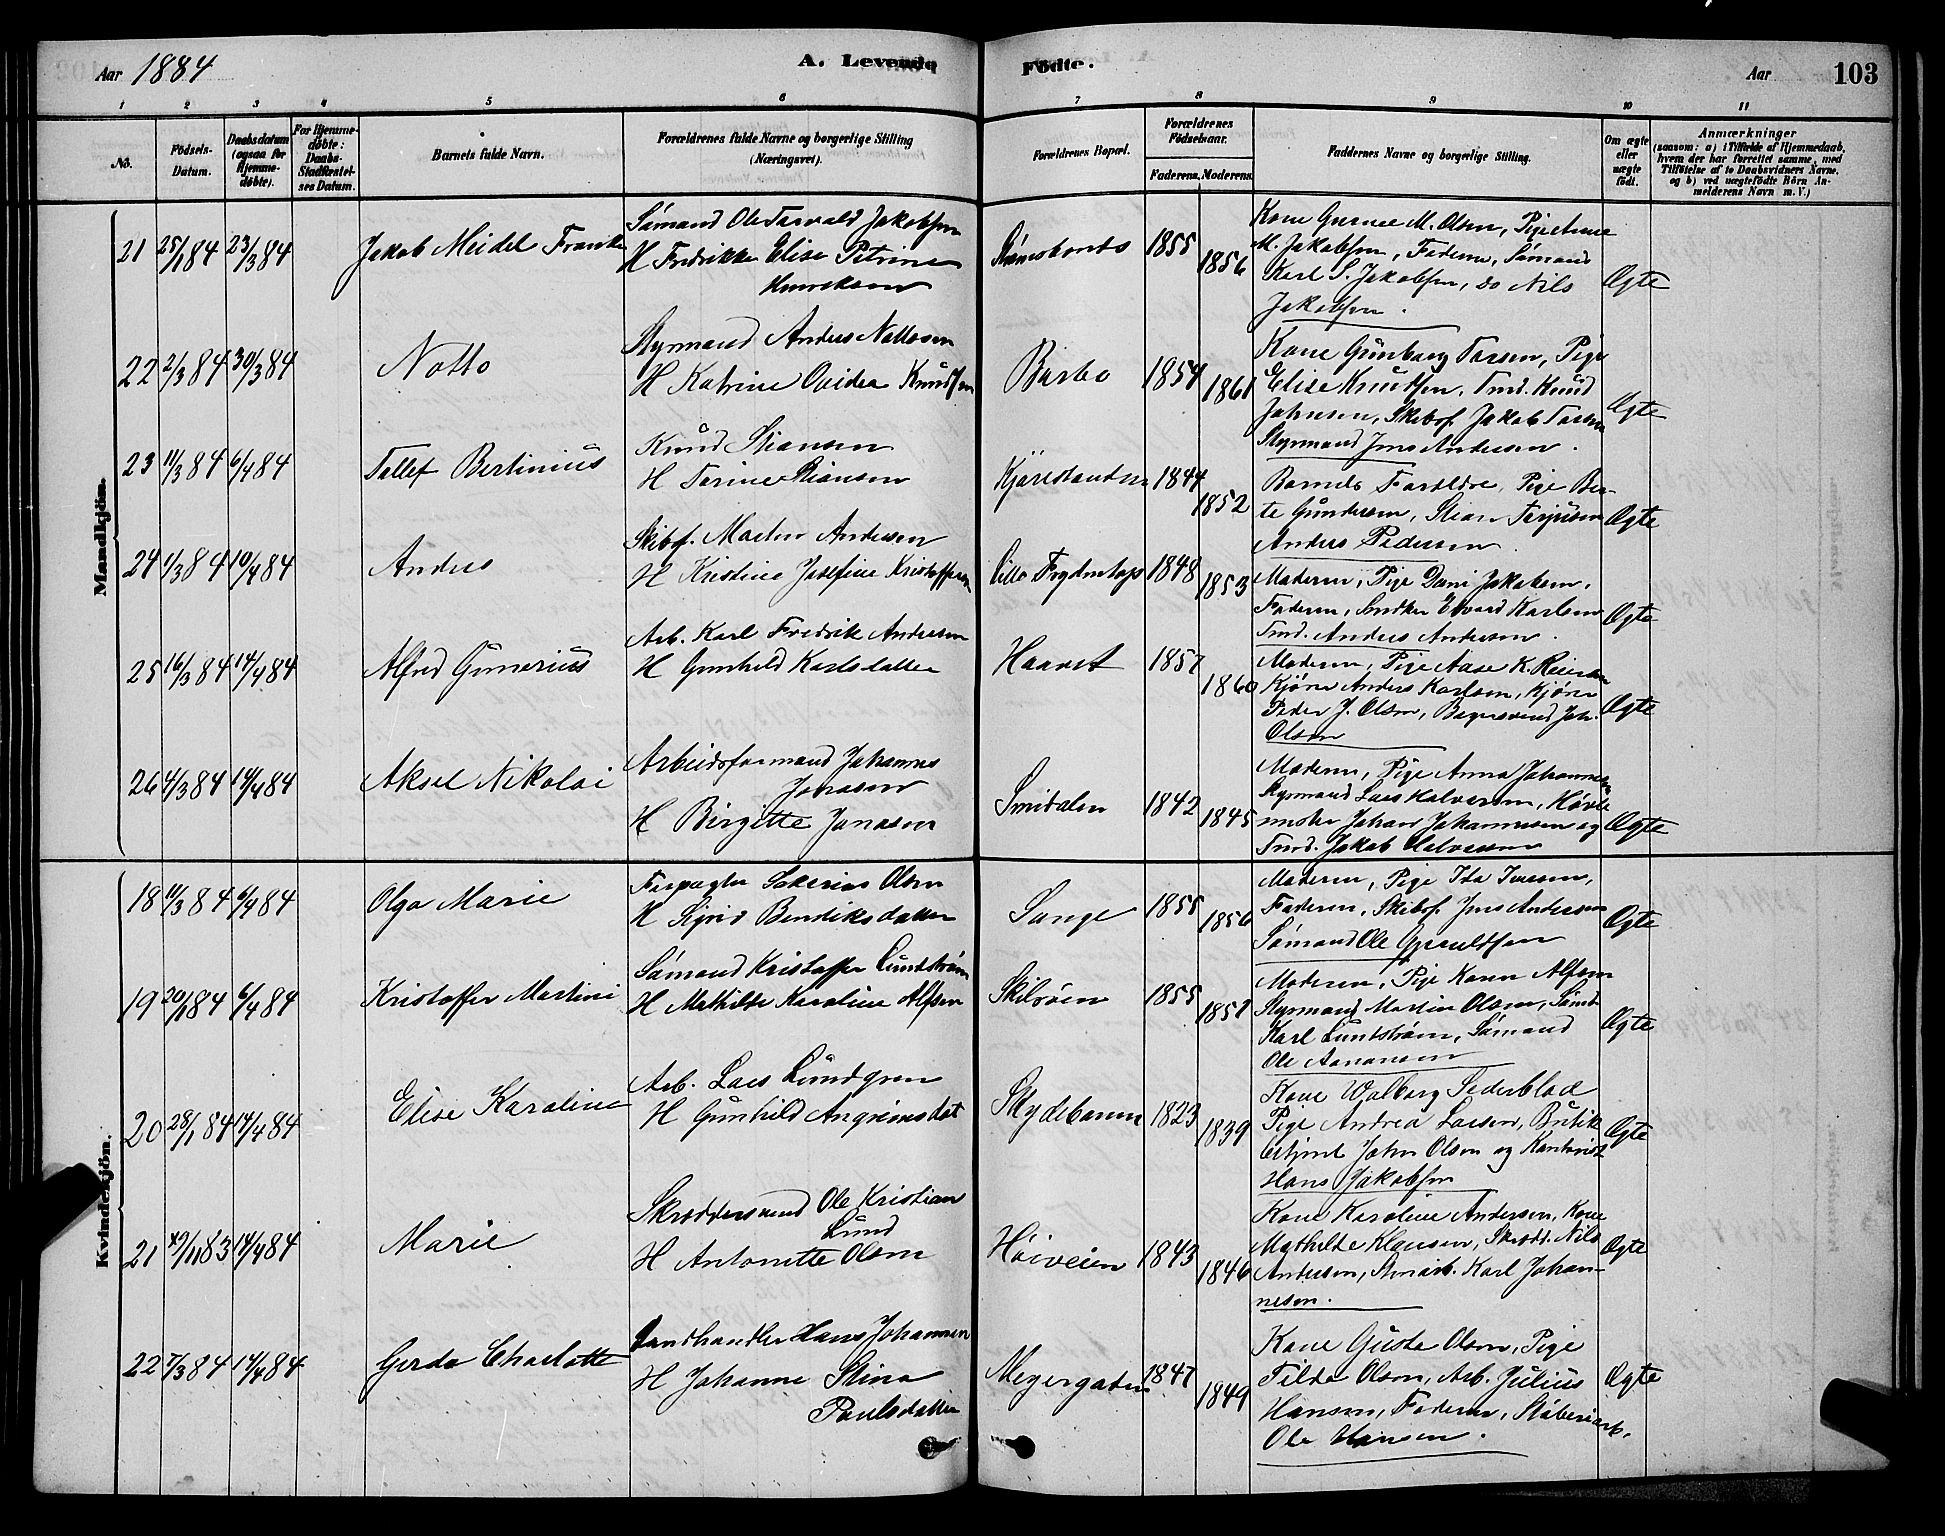 Aar 1884
A. Levende
Födte.
Aar
103
1 2 3 4 5 6 7 8 9 10 11
No.
Födsels-
Datum.
Daabsdatum
(ogsaa for
Hjemme-
døbte).
For Hjemme-
døbte:
Daabs-
Stadfæstel-
ses Datum.
Barnets fulde Navn.
Forældrenes fulde Navne og borgerlige Stilling
(Næringsvei).
Forældrenes Bopæl.
Forældrenes
Födselsaar.
Faderens. Moderens.
Faddernes Navne og borgerlige Stilling.
Om ægte
eller
uægte
födt.
Anmærkninger
(saasom: a) i Tilfælde af Hjemmedaab,
hvem der har forrettet samme, med
Tilföielse af to Daabsvidners Navne,
og b) ved uægtefödte Börn An-
melderens Navn m. V.)
Mandkjön.
21 25/1 84 23/3 84 Jakob Meidel
Sömand Ole Tarvald Jakobsen
H Fredrikke Elise Petrine
Henriksen
1855 1856
Kone Gurnee M. Olsen, Pige Anne
M. Jakobsen, Faderen, Sömand
Karl S. Jakobsen, do Nils
Jakobsen.
Ægte
22 2/3 84 30/3 84 Notto
Styrmand Anders Nottosen
H Katrine Ovidea Knudsen
Barbo 1854 1861
Kone Gunborg Tarsen, Pige
Elise Knudsen, Tmd. Knud
Johnsen, Skibsf. Jakob Tarsen
Styrmand Jens Andersen.
Ægte
23 11/3 84 6/4 84 Tallef Bertinius
Knud Stiansen
H Tarine Stiansen
Kjørestranden 1844 1852
Barnets Forældre, Pige Ber-
te Gundersen, Stian Terjusen
Anders Pedersen.
Ægte
24 1/3 84 10/4 84 Anders
Skibsf. Martin Andersen
H Kristine Josefine Kristoffersen
Lille Frydentop 1848 1853
Moderen, Pige Dani Jakobsen,
Faderen, Snedker Edvard Karlsen
Tmd. Anders Andersen.
Ægte
25 16/3 84 14/4 84 Alfred Gunerius
Arb. Karl Fredrik Andersen
H Gunhild Karlsdatter
Haavet 1857 1860
Moderen, Pige Aase K. Reiersen
Kjøre Anders Karlsen, Kjøre
Peder J. Olsen, Bagersvend Joh.
Olsen
Ægte
26 4/3 84 14/4 84 Aksel Nikolai
Arbeidsformand Johannes
Jonasen
H Birgitte Jonasen
Smidalen 1842 1845
Moderen, Pige Anna Johannesen
Styrmand Lars Halvorsen,
Johan Johannesen og
Tmd. Jakob Halvorsen
Ægte
Kvindekjön.
18 11/3 84 6/4 84 Olga Marie
Forpagter Sakarias Olsen
H Sigrid Bendiksdatter
Sange 1855 1856
Moderen, Pige Ida Iversen,
Faderen, Skibsf. Jens Andersen
Sömand Ole Gjeruldsen
Ægte
19 20/1 84 6/4 84 Kristoffer Martini
Sömand Kristoffer Lundström
H Mathilde Karoline Alfsen
Skilsöen 1855 1857
Moderen, Pige Karen Alfsen
Styrmand Martin Olsen, Sömd.
Karl Lundström, Sömand
Ole Aanonsen
Ægte
20 28/1 84 14/4 84 Elise Karoline
Arb. Lars Lundgren
H Gunhild Angrimsdat
Skydebanen 1823 1839
Kone Valborg Sederblad
Pige Andrea Larsen, Butik
betjent John Olsen og Kontorist
Hans Jakobsen
Ægte
21 29/11 83 14/4 84 Marie
Skræddersvend Ole Kristian
Lund
H Antonette Olsen
Höiveien 1843 1846
Kone Karoline Andersen, Kone
Mathilde Klausen, Skrædd. Nils
Andersen, Stenarb. Karl Johan-
nesen.
Ægte
22 7/3 84 14/4 84 Gerda Charlotte
Landhandler Hans Johannsen
H Johanne Stina
Paulsdatter
Meyergaden 1847 1849
Kone Gusta Olsen, Pige
Tilda Olsen, Arb. Julius
Hansen, Faderen, Støberiarb.
Ole Hansen.
Ægte